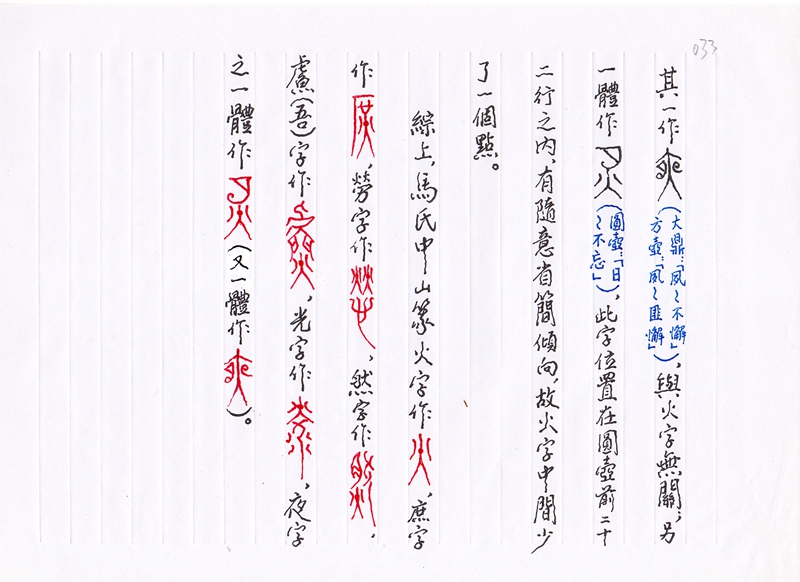 033
其一作(大鼎:「夙〻不懈」方壺:「夙〻匪懈」),與火字無關;另
一體作(圓壺:「日〻不忘」),此字位置在圓壺前二十
二行之內,有隨意省簡傾向,故火字中間少
了一個點。
綜上,馬氏中山篆火字作火,庶字
作,勞字作,然字作,
盧(吾)字作,光字作,夜字
之一體作(又一體作)。